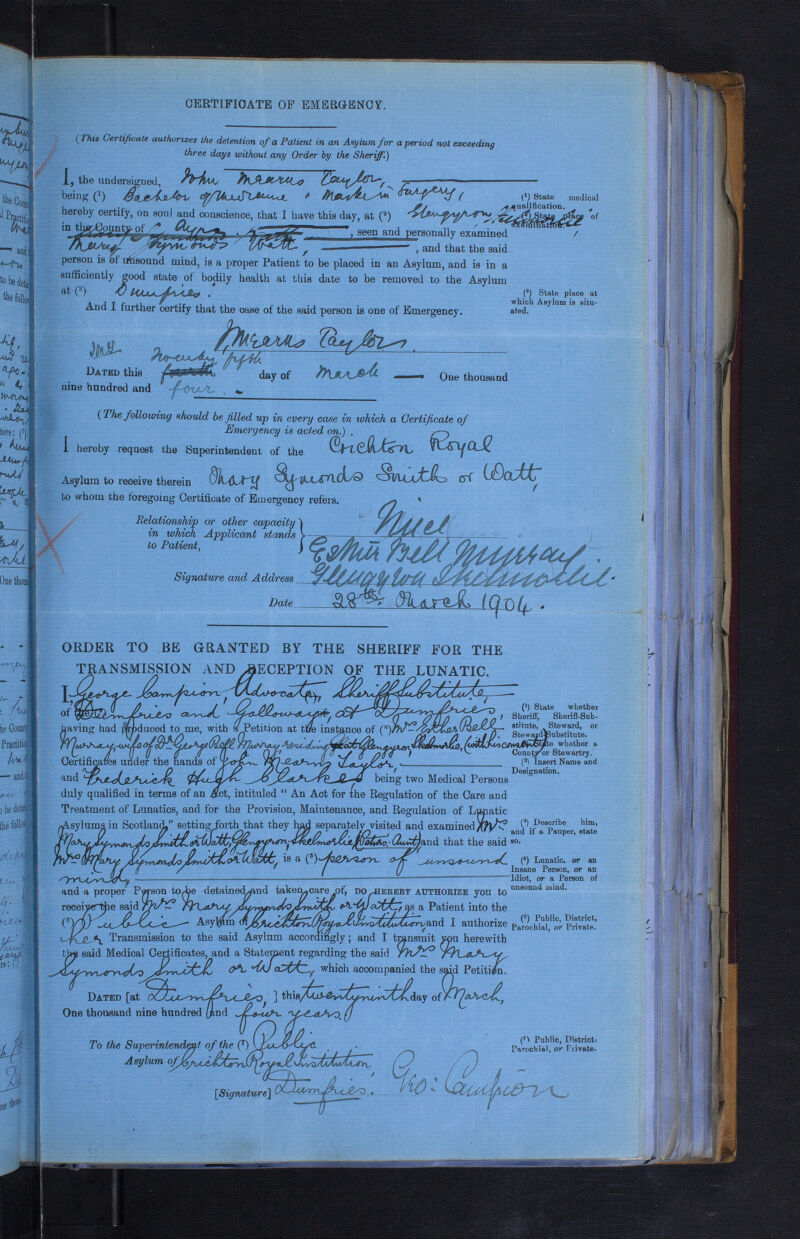 CERTIFICATE OF EMERGENCY.
(This Certificate authorizes the detention of a Patient in an Asylum for a period not exceeding
three days without any Order by the Sheriff.)
I, the undersigned, John Mearns Taylor,
being (¹) Bachelor of Medicine & Master in Surgery,
hereby certify, on soul and conscience, that I have this day, at (²) Glengyron,
in the County of Ayr, seen and personally examined
Mary Symonds Watt, and that the said
person is of unsound mind, is a proper Patient to be placed in an Asylum, and is in a
sufficiently good state of bodily health at this date to be removed to the Asylum
at (³) Dumfries.
And I further certify that the case of the said person is one of Emergency.
(¹) State medical
qualification.
(²) State place of
examination.
(³) State place at
which Asylum is situ-
ated.
J Mearns Taylor.
JMT twenty fifth
DATED this fourth day of March One thousand
nine hundred and four.
(The following should be filled up in every case in which a Certificate of
Emergency is acted on.)
I hereby request the Superintendent of the Crichton Royal
Asylum to receive therein Mary Symonds Smith or Watt,
to whom the foregoing Certificate of Emergency refers.
Relationship or other capacity
in which Applicant stands
to Patient,
Niece
Esther Bell Murray.
Signature and Address Glengyron Skelmorlie.
Date 28th March 1904.
ORDER TO BE GRANTED BY THE SHERIFF FOR THE
TRANSMISSION AND RECEPTION OF THE LUNATIC.
I, George Campion, Advocate, Sheriff Substitute
of Dumfries and Galloway, at Dumfries,
having had produced to me, with a Petition at the instance of (³) Mrs Esther Bell
Murray, wife of Dr George Bell Murray residing at Glengyron, Skelmorlie, (with his consent)
Certificates under the hands of John Mearns Taylor,
and Frederick Hugh Clarke being two Medical Persons
duly qualified in terms of an Act, intituled "An Act for the Regulation of the Care and
Treatment of Lunatics, and for the Provision, Maintenance, and Regulation of Lunatic
Asylums in Scotland," setting forth that they had separately visited and examined Mrs
Mary Symonds Smith or Watt, Glengyron, Skelmorlie, Aunt and that the said
Mrs Mary Symonds Smith or Watt, is a (⁵) person of unsound
mind,
and a proper Person to be detained and taken care of, DO HEREBY AUTHORIZE you to
receive the said Mrs Mary Symonds Smith or Watt, as a Patient into the
(⁶) Public Asylum of Crichton Royal Institution and I authorize
her Transmission to the said Asylum accordingly; and I transmit you herewith
the said Medical Certificates, and a Statement regarding the said Mrs Mary
Symonds Smith or Watt, which accompanied the said Petition.
(¹) State whether
Sheriff, Sheriff-Sub-
stitute, Steward, or
Steward Substitute.
whether a
County or Stewartry.
(³) Insert Name and
Designation.
(⁴) Describe him,
and if a Pauper, state
so.
(⁵) Lunatic, or an
Insane Person, or an
Idiot, or a Person of
unsound mind.
(⁶) Public, District,
Parochial, or Private.
DATED [at Dumfries, ] this twenty ninth day of March,
One thousand nine hundred and four years.
To the Superintendent of the (⁷) Public
Asylum of Crichton Royal Institution,
Dumfries.
(⁷) Public, District,
Parochial, or Private.
[Signature] Geo: Campion